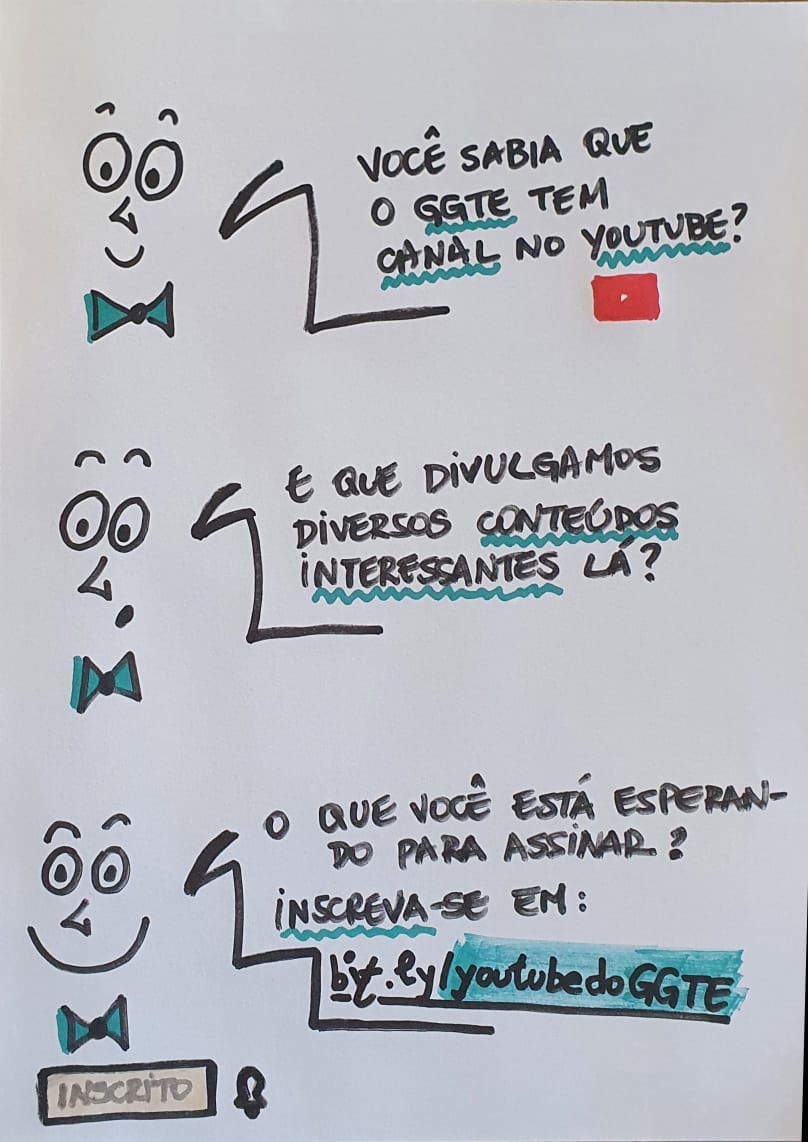 VOCÊ SABIA QUE
O GGTE TEM
CANAL NO YOUTUBE?
E QUE DIVULGAMOS
DIVERSOS CONTEÚDOS
INTERESSANTES LÁ?
O QUE VOCÊ ESTÁ ESPERAN-
DO PARA ASSINAR?
INSCREVA-SE EM:
bit.ly/youtubedoGGTE
INSCRITO